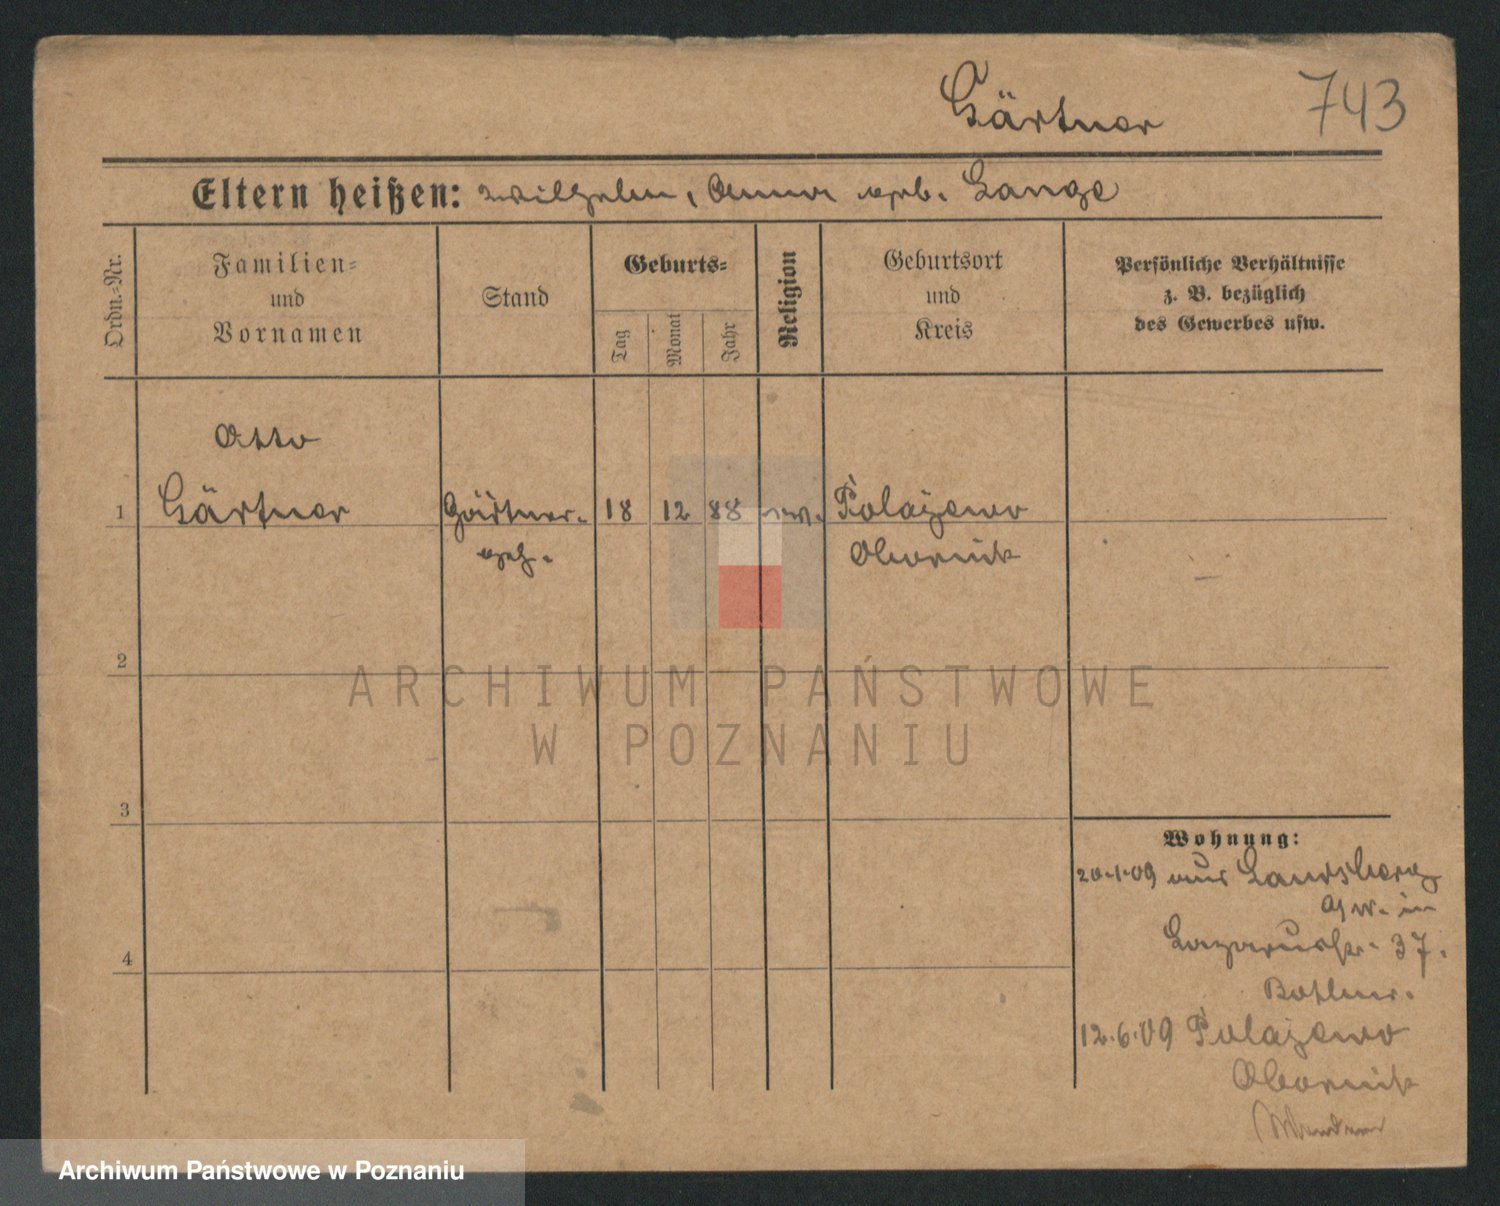 Gärtner 743
Eltern heißen: Wilhelm, Anna geb. Lange
Ordn.-Nr.
Familien-
und
Vornamen
Stand
Geburts-
Tag
Monat
Jahr
Religion
Geburtsort
und
Kreis
Persönliche Verhältnisse
z. B. bezüglich
des Gewerbes usw.
Otto
1 Gärtner Gärtner- 18 12 88 ev. Polajewo
geh. Obornik
2
3
4
Wohnung:
20.1.09 aus Landsberg
a/W. in
Lazarusstr. 37.
12.6.09 Polajewo
Obornik
ARCHIWUM PAŃSTWOWE
W POZNANIU
Archiwum Państwowe w Poznaniu